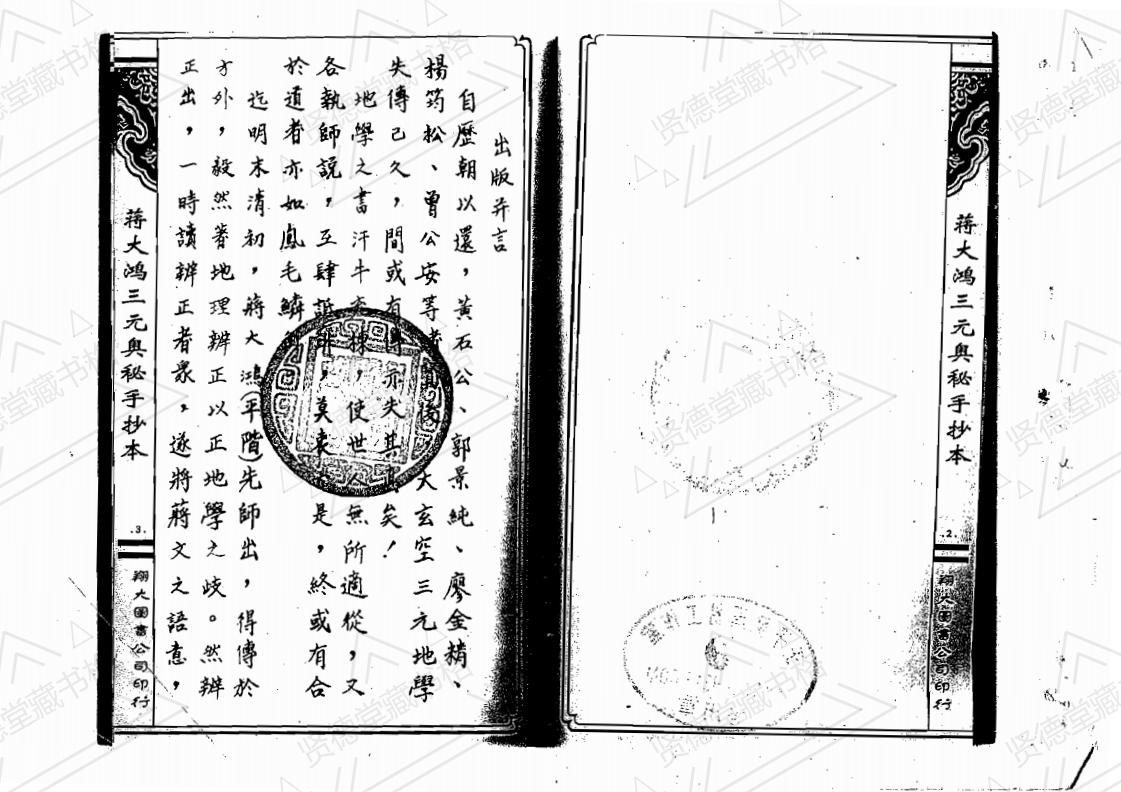 蔣大鴻三元奧秘手抄本
.2.
翔大圖書公司印行
出版弁言
自歷朝以還，黃石公、郭景純、廖金精、
楊筠松、曾公安等 後 大玄空三元地學
失傳已久，間或有傳亦失其 矣！
地學之書汗牛充棟，使世人無所適從，又
各執師說，互肆詆 ，莫衷 是，終或有合
於道者亦如鳳毛鱗
迄明末清初，蔣大鴻（平階）先師出，得傳於
方外，毅然著地理辨正以正地學之歧。然辨
正出，一時讀辨正者衆，遂將蔣文之語意，
蔣大鴻三元奧秘手抄本
.3.
翔大圖書公司印行
贤德堂藏书格